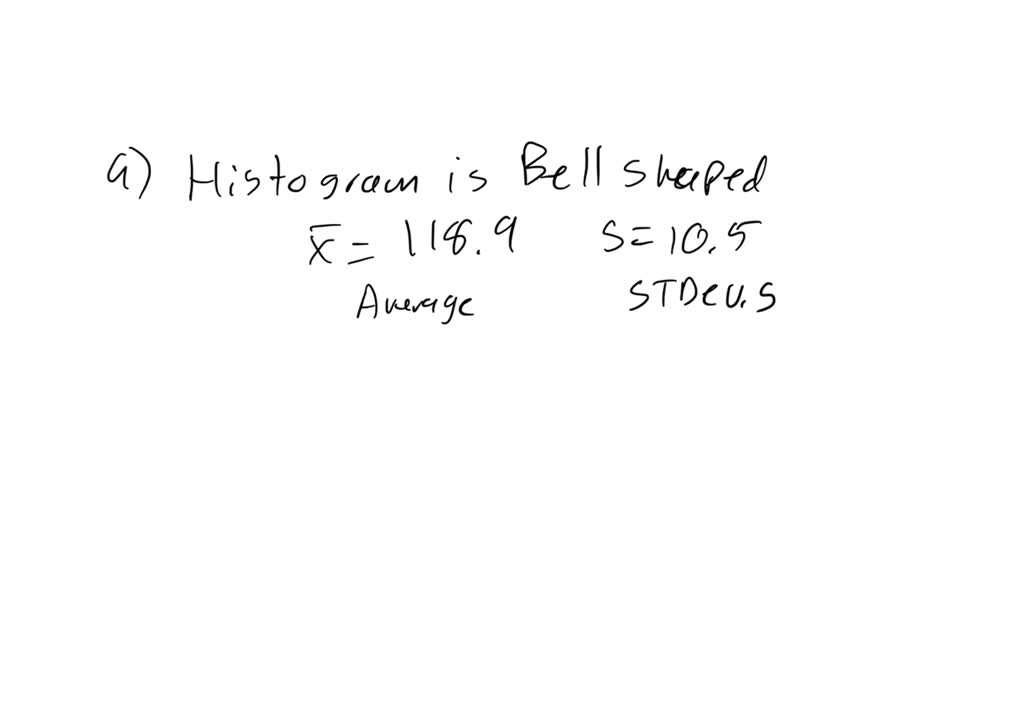 a) Histogram is Bell shaped
x̄ = 118.9 s = 10.5
Average STDev.S